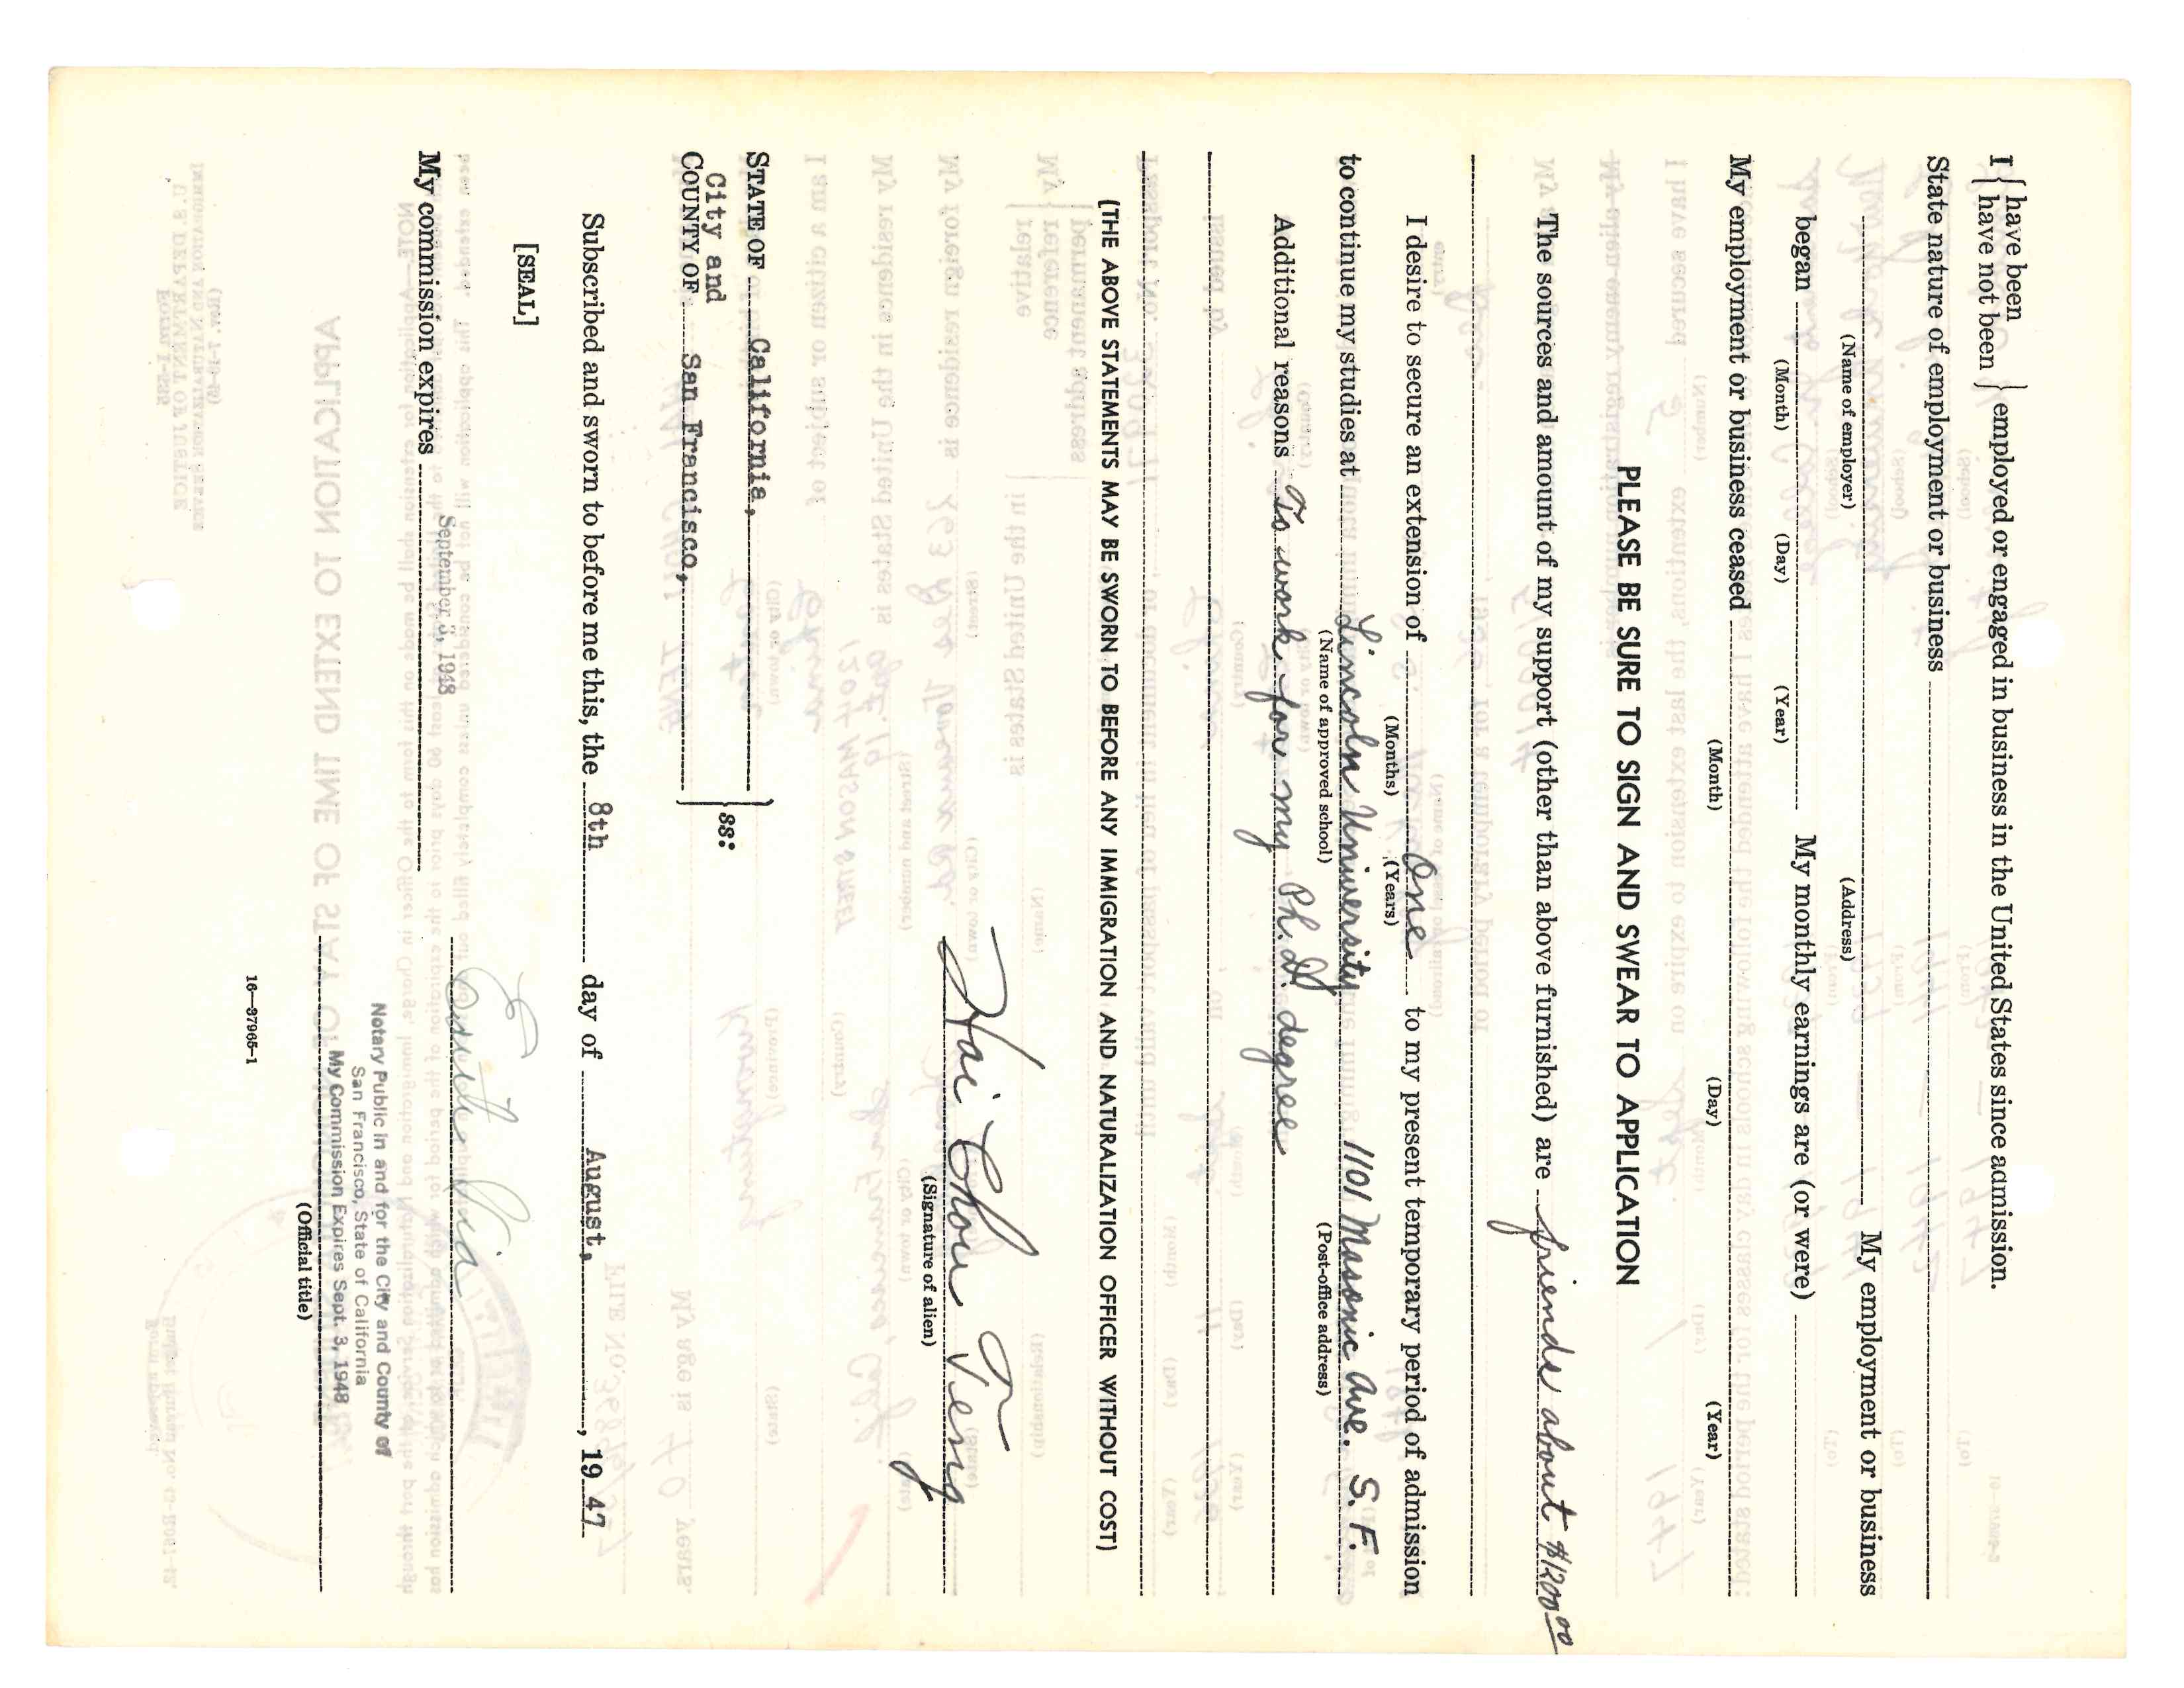 I { have been
have not been } employed or engaged in business in the United States since admission.
State nature of employment or business
My employment or business
(Name of employer) (Address)
began My monthly earnings are (or were)
(Month) (Day) (Year)
My employment or business ceased
(Month) (Day) (Year)
PLEASE BE SURE TO SIGN AND SWEAR TO APPLICATION
The sources and amount of my support (other than above furnished) are friends about $1200.00
I desire to secure an extension of One to my present temporary period of admission
(Months) (Years)
to continue my studies at Lincoln University 1101 Masonic Ave. S. F.
(Name of approved school) (Post-office address)
Additional reasons To work for my Ph. D. degree
(THE ABOVE STATEMENTS MAY BE SWORN TO BEFORE ANY IMMIGRATION AND NATURALIZATION OFFICER WITHOUT COST)
Hai Chou Teng
(Signature of alien)
STATE OF California,
City and
COUNTY OF San Francisco,
ss:
Subscribed and sworn to before me this, the 8th day of August, , 19 47
[SEAL]
Via
My commission expires September 3, 1948
Notary Public in and for the City and County of
San Francisco, State of California
My Commission Expires Sept. 3, 1948
(Official title)
16—37965-1